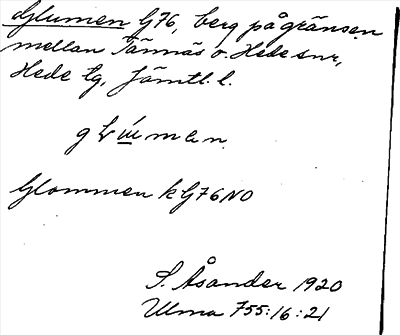 Glumen G76, berg på gränsen
mellan Tännäs o. Hede snr,
Hede tg, Jämtl. l.
glúmen
Glommen k G76 NO
S. Åsander 1920
Ulma 755:16:21